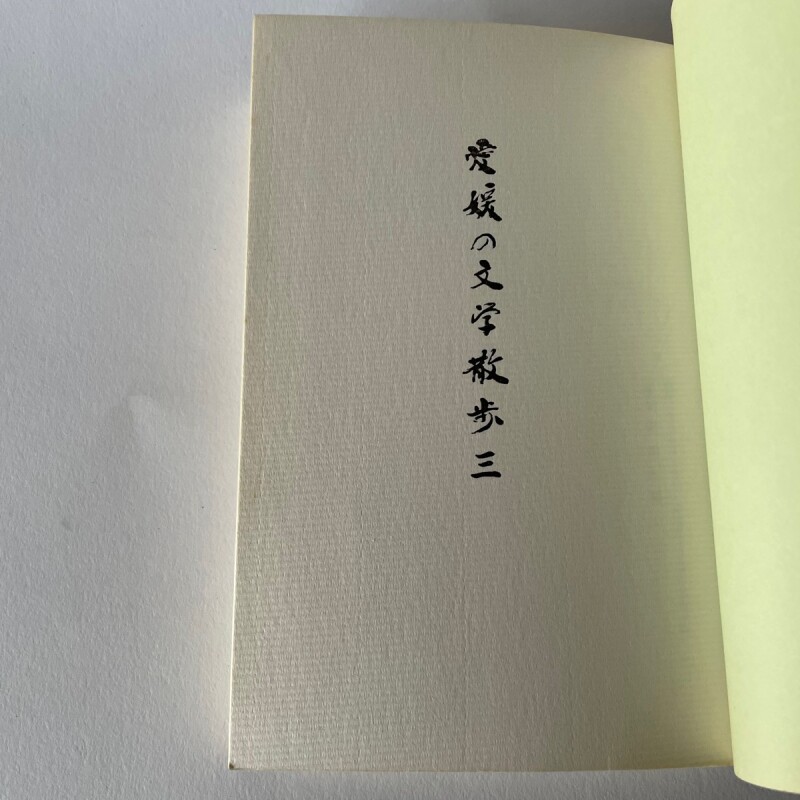 愛媛の文学散歩 三